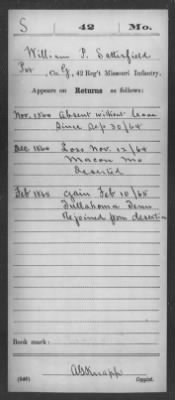 S 42 Mo.
William P. Satterfield
Pvt, Co. G, 42 Reg't Missouri Infantry.
Appears on Returns as follows:
Nov. 1864 Absent without leave
Since Sep 30/64
Dec. 1864 Loss Nov. 12/64
Macon Mo
Deserted
Feb 1865 Gain Feb 10/65
Tullahoma Tenn
Rejoined from desertion
Book mark:
(546) Copyist.